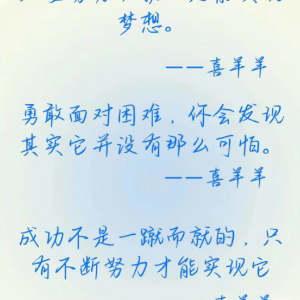 梦想。
——喜羊羊
勇敢面对困难，你会发现
其实它并没有那么可怕。
——喜羊羊
成功不是一蹴而就的，只
有不断努力才能实现它